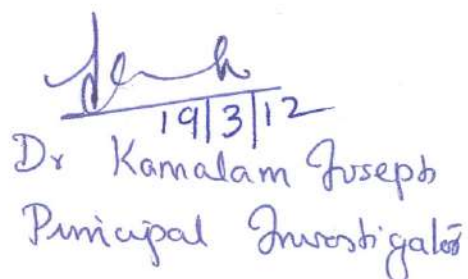 19/3/12
Dr Kamalam Joseph
Principal Investigator